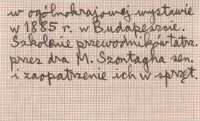 w ogólnokrajowej wystawie
w 1885 r. w Budapeszcie.
Szkolenie przewodników tatrz.
przez dra M. Szontagha sen.
i zaopatrzenie ich w sprzęt.